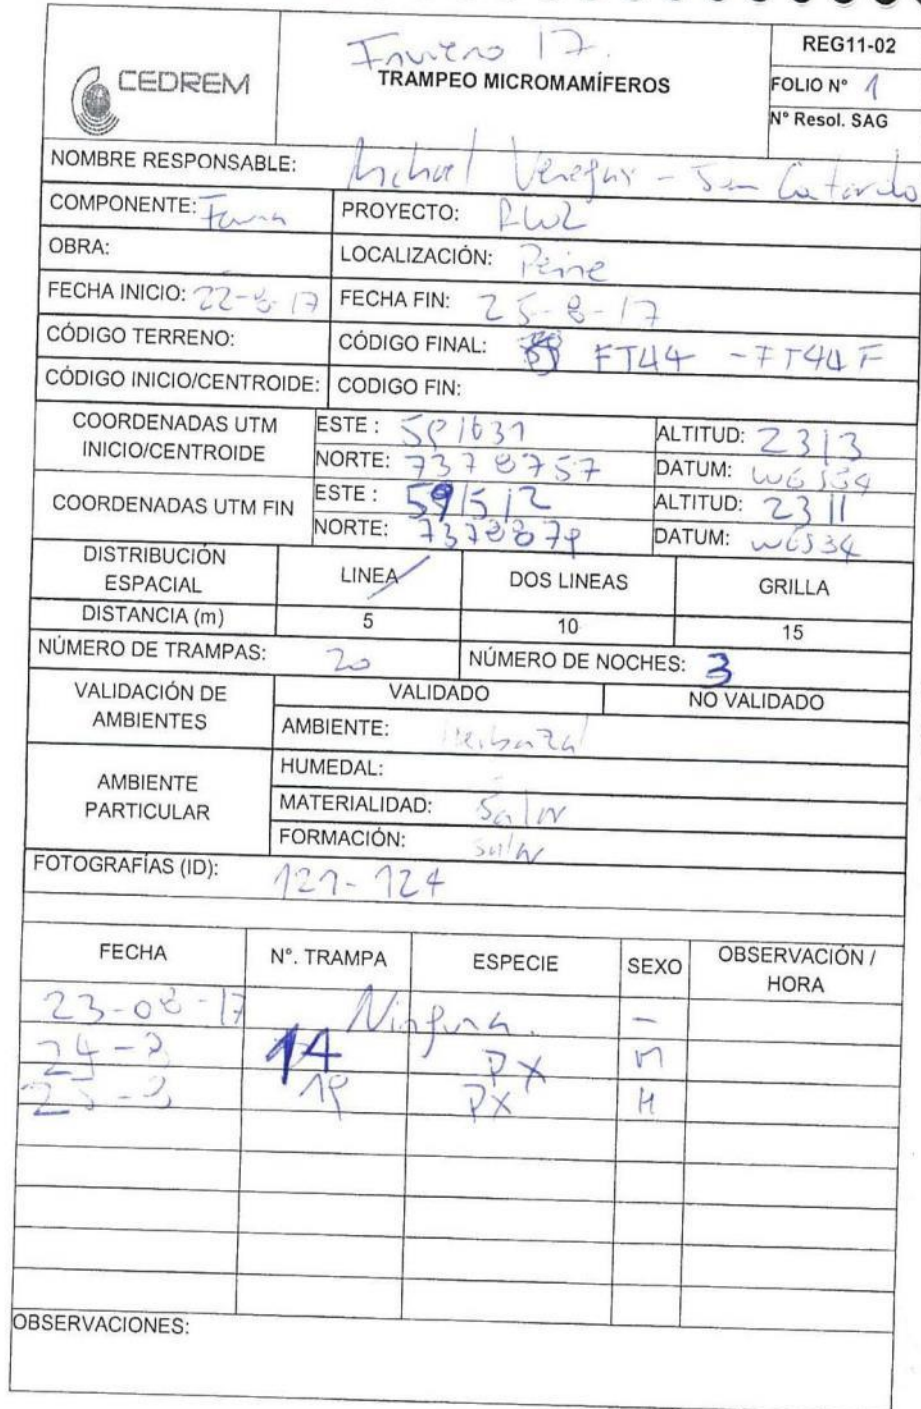 Invierno 17.
CEDREM
TRAMPEO MICROMAMÍFEROS
REG11-02
FOLIO Nº 1
Nº Resol. SAG
NOMBRE RESPONSABLE: Michael Venegas -
COMPONENTE: Fauna PROYECTO:
OBRA: LOCALIZACIÓN: Peine
FECHA INICIO: 22-8-17 FECHA FIN: 25-8-17
CÓDIGO TERRENO: CÓDIGO FINAL: FT44 - FT44F
CÓDIGO INICIO/CENTROIDE: CODIGO FIN:
COORDENADAS UTM INICIO/CENTROIDE
ESTE: 591631 ALTITUD: 2313
NORTE: 7378757 DATUM: WGS84
COORDENADAS UTM FIN
ESTE: 591512 ALTITUD: 2311
NORTE: 7378879 DATUM: WGS84
DISTRIBUCIÓN ESPACIAL LINEA DOS LINEAS GRILLA
DISTANCIA (m) 5 10 15
NÚMERO DE TRAMPAS: 20 NÚMERO DE NOCHES: 3
VALIDACIÓN DE AMBIENTES VALIDADO NO VALIDADO
AMBIENTE: Herbazal
AMBIENTE PARTICULAR
HUMEDAL: -
MATERIALIDAD: Salar
FORMACIÓN: salar
FOTOGRAFÍAS (ID): 121-124
FECHA Nº. TRAMPA ESPECIE SEXO OBSERVACIÓN / HORA
23-08-17 Ninguna. -
24-8 14 PX M
25-8 19 PX H
OBSERVACIONES: